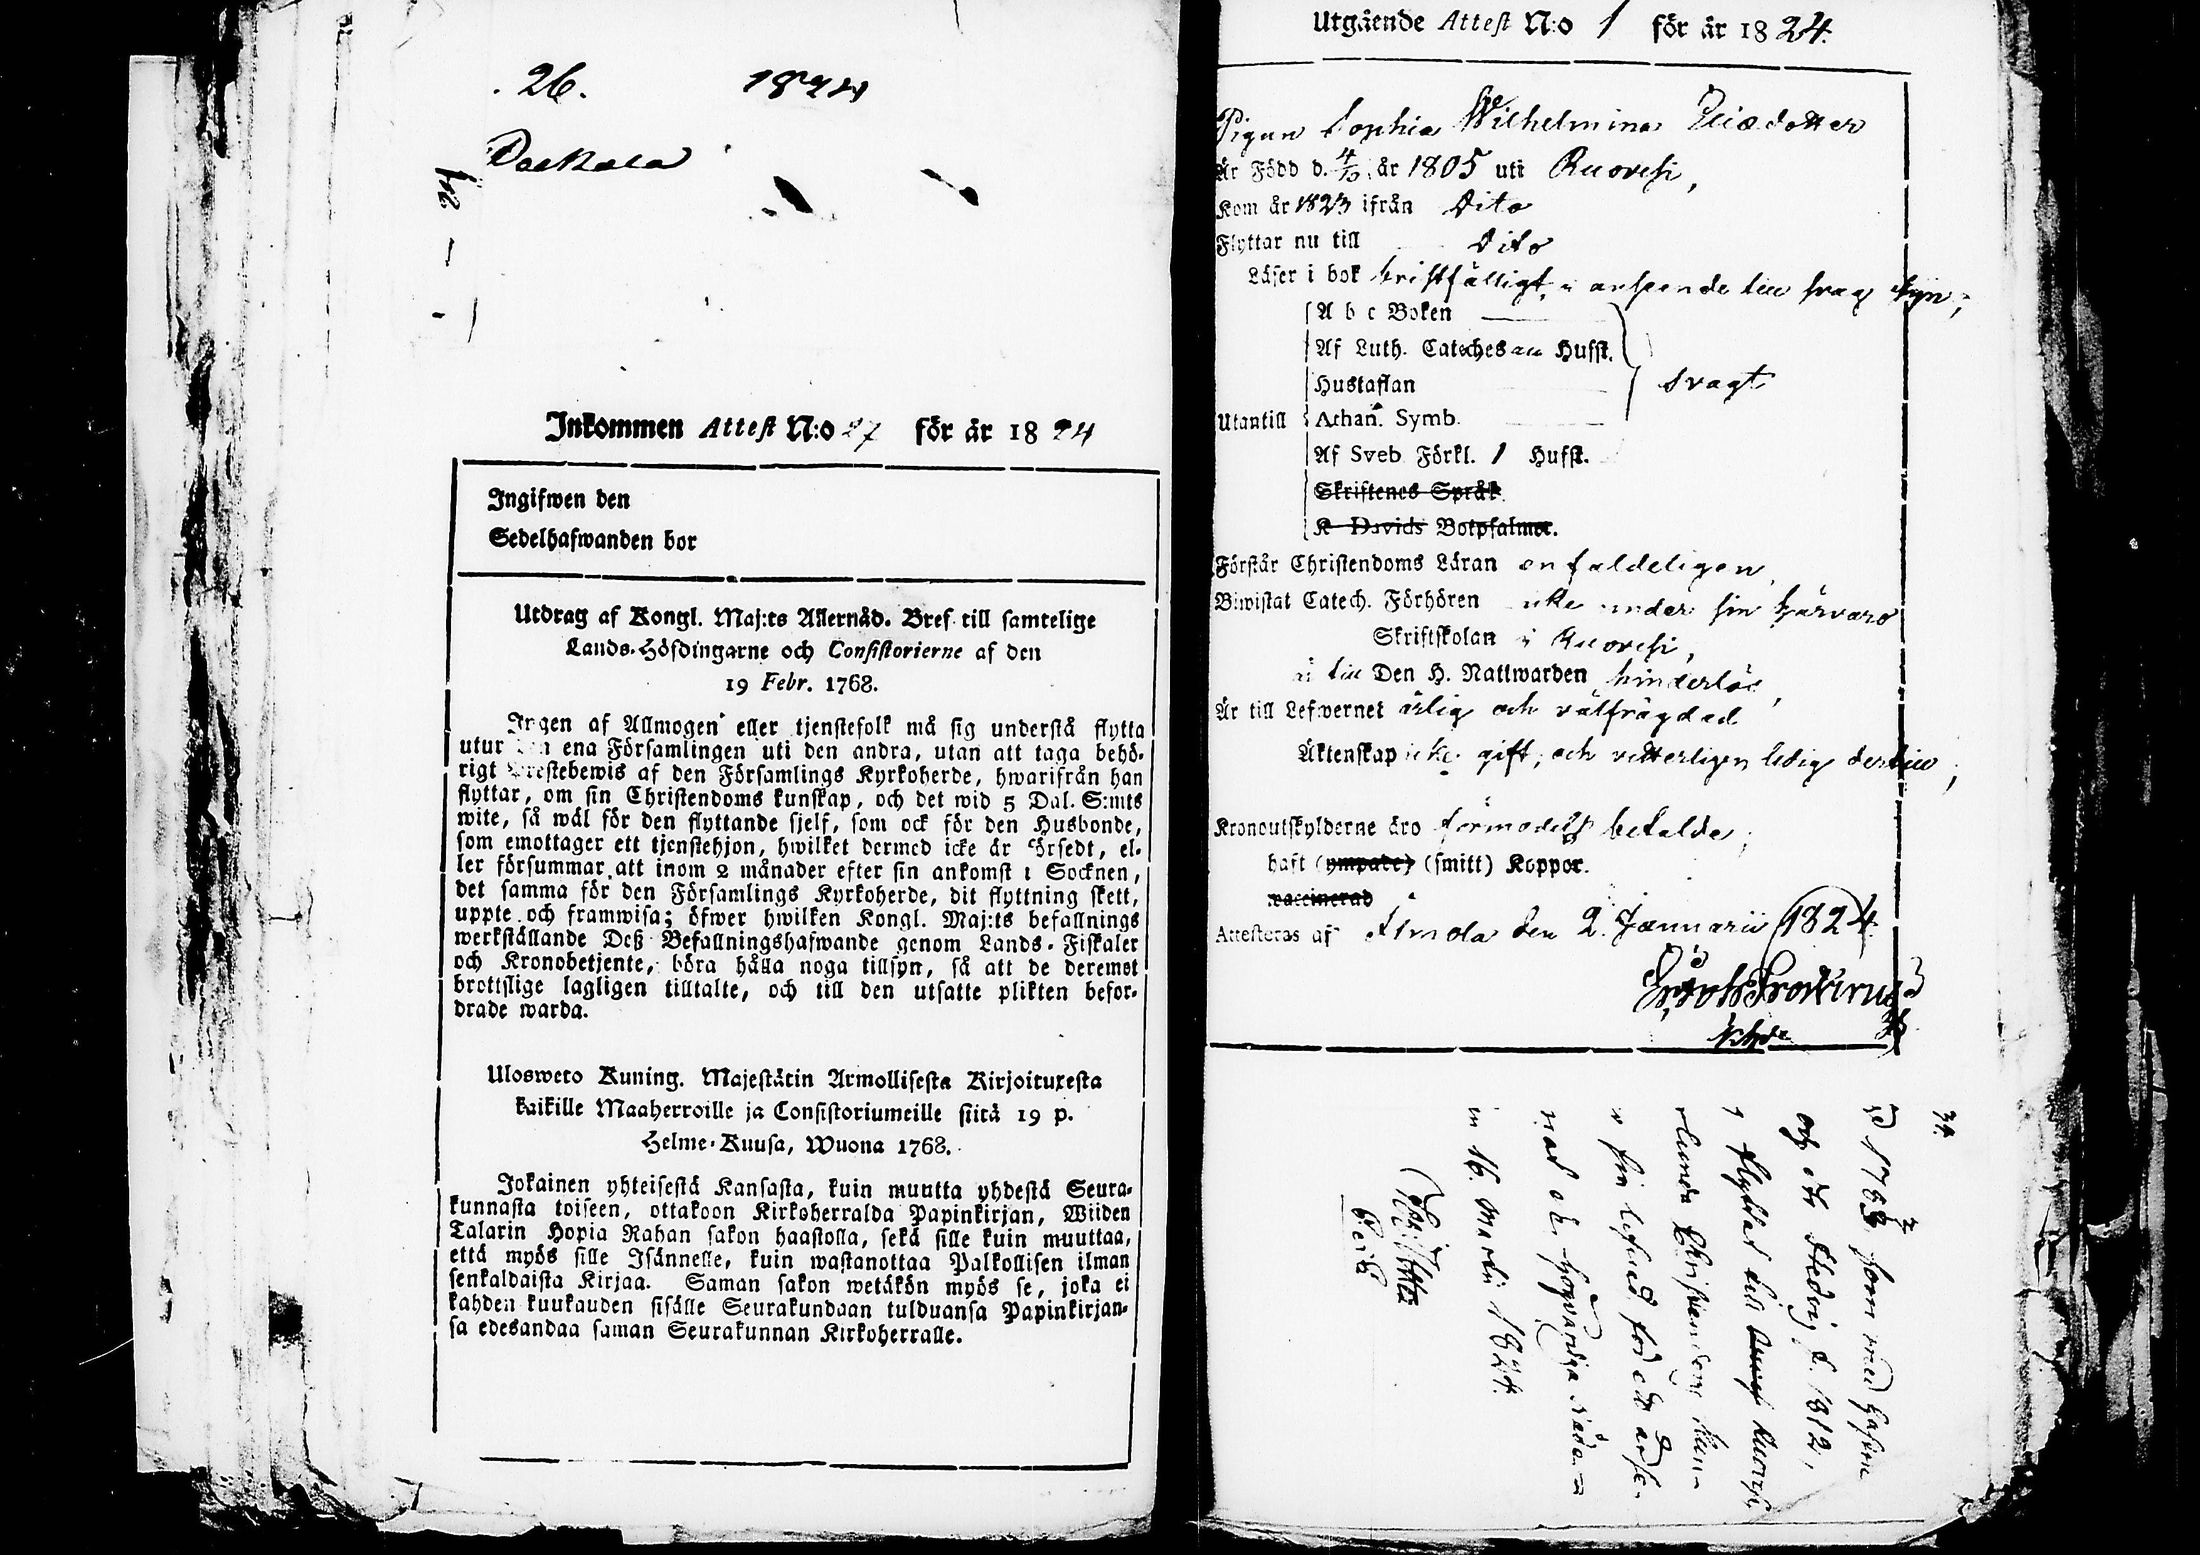 26. 1824
Inkommen Attest N:o 27 för år 1824
Ingifwen den
Sedelhafwanden bor
Utdrag af Kongl. Maj:ts Allernåd. Bref till samtelige
Lands-Höfdingarne och Consistorierne af den
19 Febr. 1768.
Ingen af Allmogen eller tjenstefolk må sig understå flytta
utur den ena Församlingen uti den andra, utan att taga behö-
rigt Prestebewis af den Församlings Kyrkoherde, hwarifrån han
flyttar, om sin Christendoms kunskap, och det wid 5 Dal. S:mts
wite, så wäl för den flyttande sjelf, som ock för den Husbonde,
som emottager ett tjenstehjon, hwilket dermed icke är försedt, el-
ler försummar att inom 2 månader efter sin ankomst i Socknen,
det samma för den Församlings Kyrkoherde, dit flyttning skett,
uppte och framwisa; öfwer hwilken Kongl. Maj:ts befallnings
werkställande Deß Befallningshafwande genom Lands-Fiskaler
och Kronobetjente, böra hålla noga tillsyn, så att de deremot
brottslige lagligen tilltalte, och till den utsatte plikten befor-
drade warda.
Uloswetο Kuning. Majestätin Armollisesta Kirjoituxesta
kaikille Maaherroille ja Consistoriumeille siitä 19 p.
Helme-Kuusa, Wuona 1768.
Jokainen yhteisestä Kansasta, kuin muutta yhdestä Seura-
kunnasta toiseen, ottakoon Kirkoherralda Papinkirjan, Wiiden
Talarin Hopia Rahan sakon haastolla, sekä sille kuin muuttaa,
että myös sille Isännelle, kuin wastanottaa Palkollisen ilman
senkaldaista Kirjaa. Saman sakon wetäkön myös se, joka ei
kahden kuukauden sisälle Seurakundaan tulduansa Papinkirjan-
sa edesandaa saman Seurakunnan Kirkoherralle.
Utgående Attest N:o 1 för år 1824.
Pigan Sophia Wilhelmina Eliædotter
Är Född d. 4/10 år 1805 uti Ruovesi,
Kom år 1823 ifrån Dito
Flyttar nu till Dito
Läser i bok bristfälligt, i anseende till svag syn;
A b c Boken
Af Luth. Cateches Hufst.
Hustaflan svagt
Utantill Athan. Symb.
Af Sveb Förkl. 1 Hufst.
Skriftenes Språk
K Davids Botpsalmer.
Förstår Christendoms Läran enfaldeligen,
Biwistat Catech. Förhören icke under sin härvaro
Skriftskolan i Ruovesi,
till Den H. Nattwarden hinderlös,
Är till Lefwernet ärlig och välfrägdad
Äktenskap icke gift, och vetterligen ledig dertill;
Kronoutskylderne äro förmodeligt betalda;
haft (ympade) (smitt) Koppor.
vaccinerad
Attesteras af den 2. Januarii 1824.
34.
1783 som med
och Hedvig f. 1812,
flyttat till Ruovesi
Christendoms kun-
16. Martii 1824.